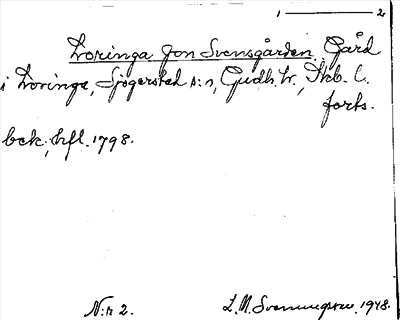 1 — 2
Loringa Jon Svensgården. Gård
i Loringa, Sjogerstad s:n, Gudh. hr., Skb. l.
forts.
bek., hfl. 1798.
N:r 2. L. M. Svenungsson. 1948.